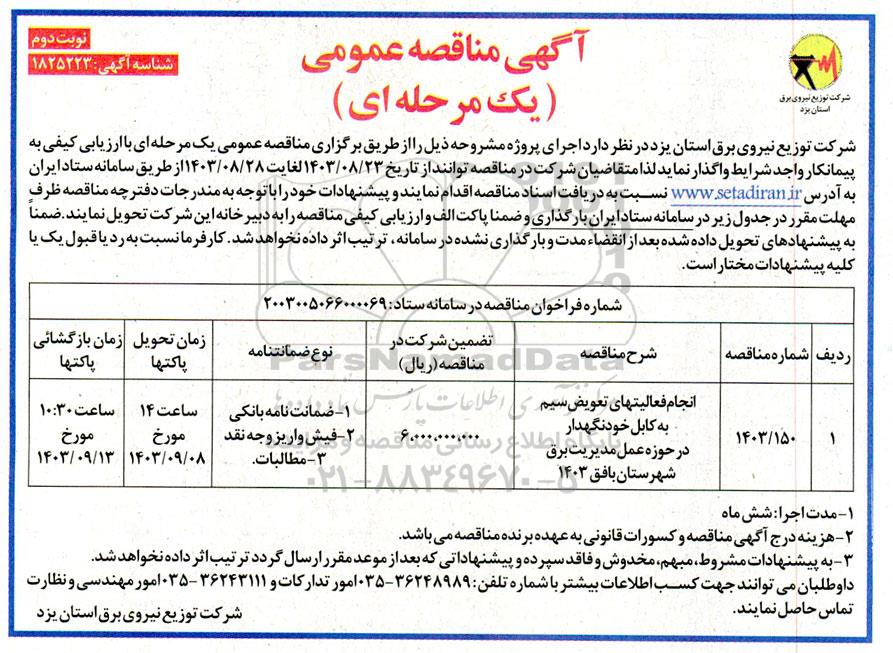 نوبت دوم
شناسه آگهی: ۱۸۲۵۲۲۳
آگهی مناقصه عمومی
(یک مرحله ای)
شرکت توزیع نیروی برق
استان یزد
شرکت توزیع نیروی برق استان یزد در نظر دارد اجرای پروژه مشروحه ذیل را از طریق برگزاری مناقصه عمومی یک مرحله ای با ارزیابی کیفی به
پیمانکار واجد شرایط واگذار نماید لذا متقاضیان شرکت در مناقصه توانند از تاریخ ۱۴۰۳/۰۸/۲۳ لغایت ۱۴۰۳/۰۸/۲۸ از طریق سامانه ستاد ایران
به آدرس www.setadiran.ir نسبت به دریافت اسناد مناقصه اقدام نمایند و پیشنهادات خود را با توجه به مندرجات دفترچه مناقصه ظرف
مهلت مقرر در جدول زیر در سامانه ستاد ایران بارگذاری و ضمنا پاکت الف و ارزیابی کیفی مناقصه را به دبیرخانه این شرکت تحویل نمایند. ضمناً
به پیشنهادهای تحویل داده شده بعد از انقضاء مدت و بارگذاری نشده در سامانه، ترتیب اثر داده نخواهد شد. کارفرما نسبت به رد یا قبول یک یا
کلیه پیشنهادات مختار است.
شماره فراخوان مناقصه در سامانه ستاد: ۲۰۰۳۰۰۵۰۶۶۰۰۰۰۶۹
ردیف
شماره مناقصه
شرح مناقصه
تضمین شرکت در
مناقصه (ریال)
نوع ضمانتنامه
زمان تحویل
پاکتها
زمان بازگشائی
پاکتها
۱
۱۴۰۳/۱۵۰
انجام فعالیتهای تعویض سیم
به کابل خودنگهدار
در حوزه عمل مدیریت برق
شهرستان بافق ۱۴۰۳
۶.۰۰۰.۰۰۰.۰۰۰
۱-ضمانت نامه بانکی
۲-فیش واریز وجه نقد
۳-مطالبات.
ساعت ۱۴
مورخ
۱۴۰۳/۰۹/۰۸
ساعت ۱۰:۳۰
مورخ
۱۴۰۳/۰۹/۱۳
ParsNamadData
پایگاه اطلاع رسانی مناقصه و مزایده
۰۲۱-۸۸۳۴۹۶۷۰-۵
۱-مدت اجرا: شش ماه
۲-هزینه درج آگهی مناقصه و کسورات قانونی به عهده برنده مناقصه می باشد.
۳-به پیشنهادات مشروط، مبهم، مخدوش و فاقد سپرده و پیشنهاداتی که بعد از موعد مقرر ارسال گردد ترتیب اثر داده نخواهد شد.
داوطلبان می توانند جهت کسب اطلاعات بیشتر با شماره تلفن: ۳۶۲۴۸۹۸۹-۰۳۵ امور تدارکات و ۳۶۲۴۳۱۱۱-۰۳۵ امور مهندسی و نظارت
تماس حاصل نمایند.
شرکت توزیع نیروی برق استان یزد